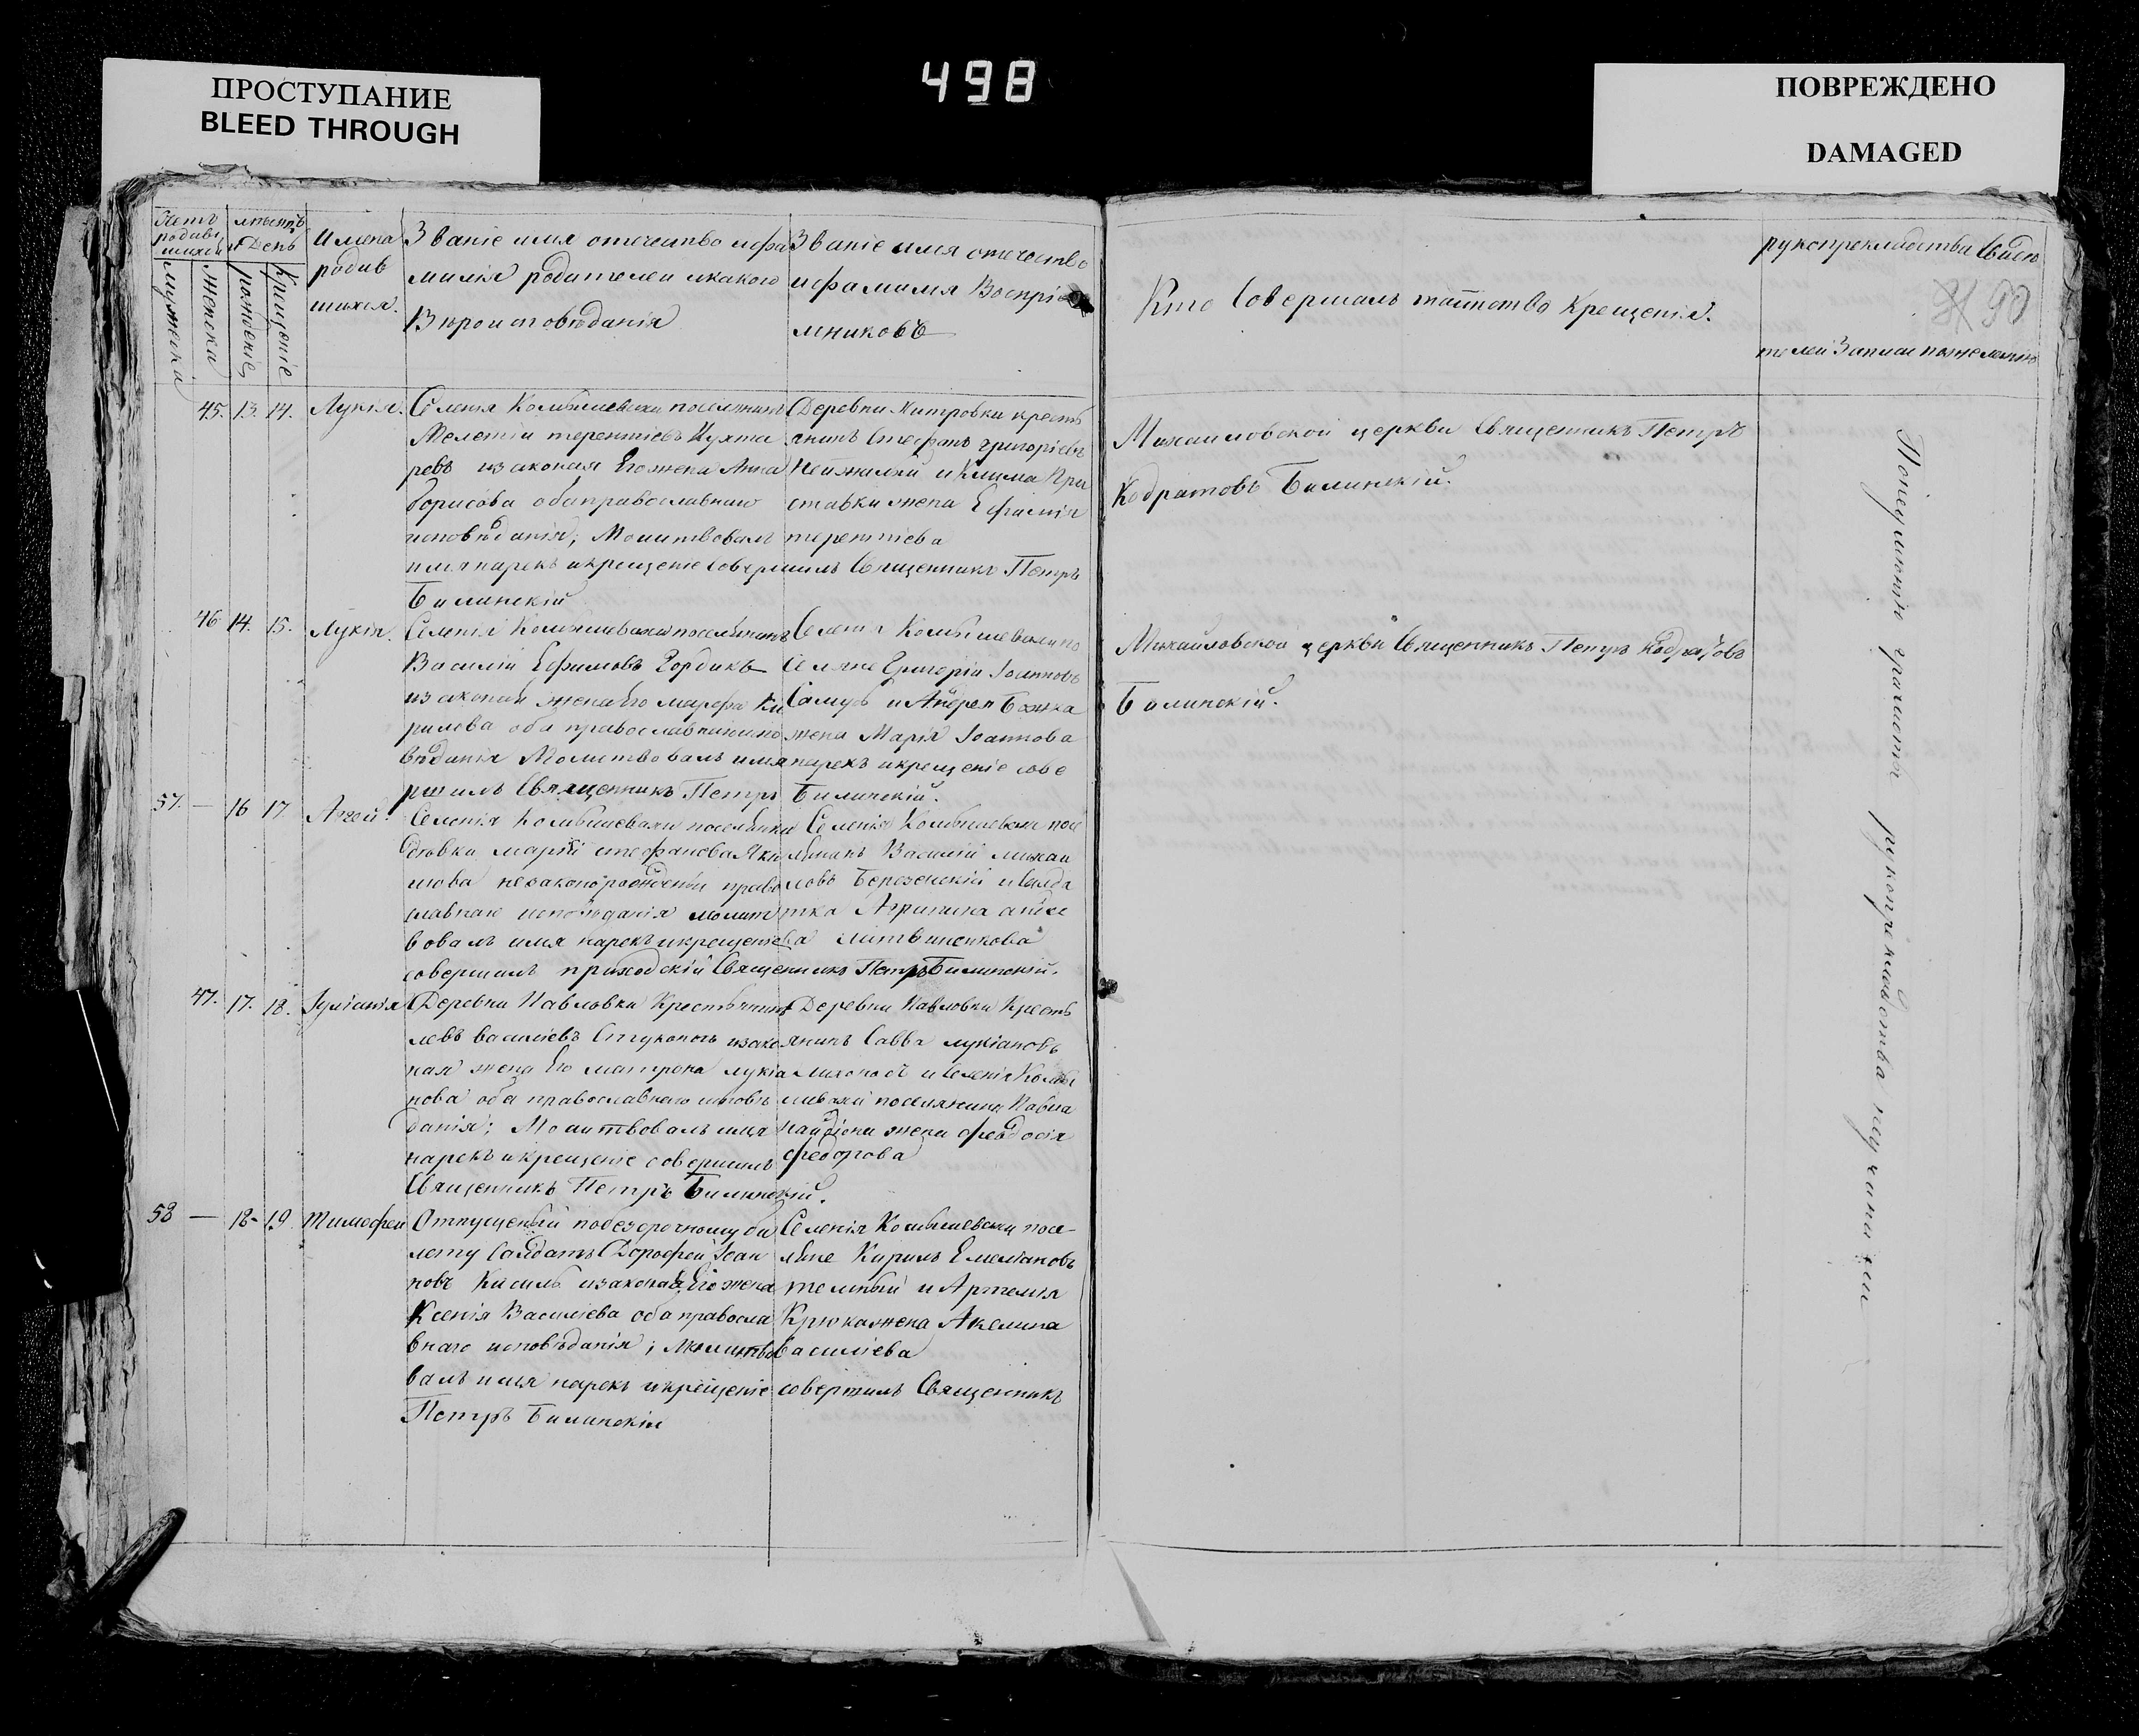 498
ПРОСТУПАНИЕ
BLEED THROUGH
ПОВРЕЖДЕНО
DAMAGED
Счетъ родившихся
мужеска
женска
мѣсяцъ и День
рожденіе
крещеніе
Имена
родив
шихся.
Званіе имя отечество ифа
милія родителей икакого
Вѣроисповѣданія
Званіе имя отечество
ифамилія Воспріе
мниковъ
Кто Совершалъ таинство Крещенія.
рукоприкладства Свидѣ
90
телей Записи пожеланію
45. 13. 14. Лукія.
Селенія Комышевахи поселянинъ
Мелетій терентіевъ Кухта
ревъ изаконая Егожена Анна
борисова обаправославнаго
исповѣданія; Молитвовалъ
имянарекъ икрещеніе совершилъ Священникъ Петръ
Билинскій
Деревни Митровки кресть
янинъ Стефанъ григоріевъ
Неижмакъ и Клима При
ставки жена Ефимія
терентіева
Михаиловской церкви Священникъ Петръ
Кодратовъ Билинскій.
46 14. 15. Лукія.
Селенія Комышевахи поселянинъ
Василій Ефимовъ Гордикъ
изаконая женаЕго марфа Ки
рилова оба православнагоиспо
вѣданія Молитвовалъ имянарекъ икрещеніе сове
ршилъ Священникъ Петръ Билинскій.
Селенія Комышевахипо
селяне Григорій Іоанновъ
Самусь и Андрея Божка
жена Марія Іоаннова
Михайловской церкви Священникъ Петръ Кодратовъ
Билинскій.
57. — 16 17 Аггей.
Селенія Комышевахи поселянки
вдовки маріи стефановаЯки
мова незаконорожденый право
славнаго исповѣданія молит
вовалъ имя нарекъикрещеніе
совершилъ приходскій Священникъ Петръ Билинскій.
Селенія Комышевахи посе
лянинъ Василій михаи
ловъ Березенскій и Солда
тка Агрипина
ва литвиненкова
47. 17. 18. Іуліанія
Деревни Павловки Крестьянинъ
левъ василіевъ Стуконогъ изако
ная жена Его матрона лукіа
нова оба православнаго исповѣ
данія; Молитвовалъ имя
нарекъ икрещеніе совершилъ
Священникъ Петръ Билинскій.
Деревни Павловки Кресть
янинъ Савва лукіановъ
и Селенія Комы
шевахи поселянина Павла
Найдіона жена феодосія
феодорова
58 — 18- 19 Тимофей
Отпущеный побезсрочномуби
лету Салдатъ Дорофей Іоан
новъ Кисиль изаконая Егожена
Ксенія Василіева оба правосла
внаго исповѣданія; Молитво
валъ имя нарекъ икрещеніе совершилъ Священникъ
Петръ Билинскій
Селенія Комышевахи посе-
ляне Кирилъ Емеліановъ
темный и Артемія
Крюкажена Акелина
василіева
Понеумѣнію грамоти рукоприкладства неучинили